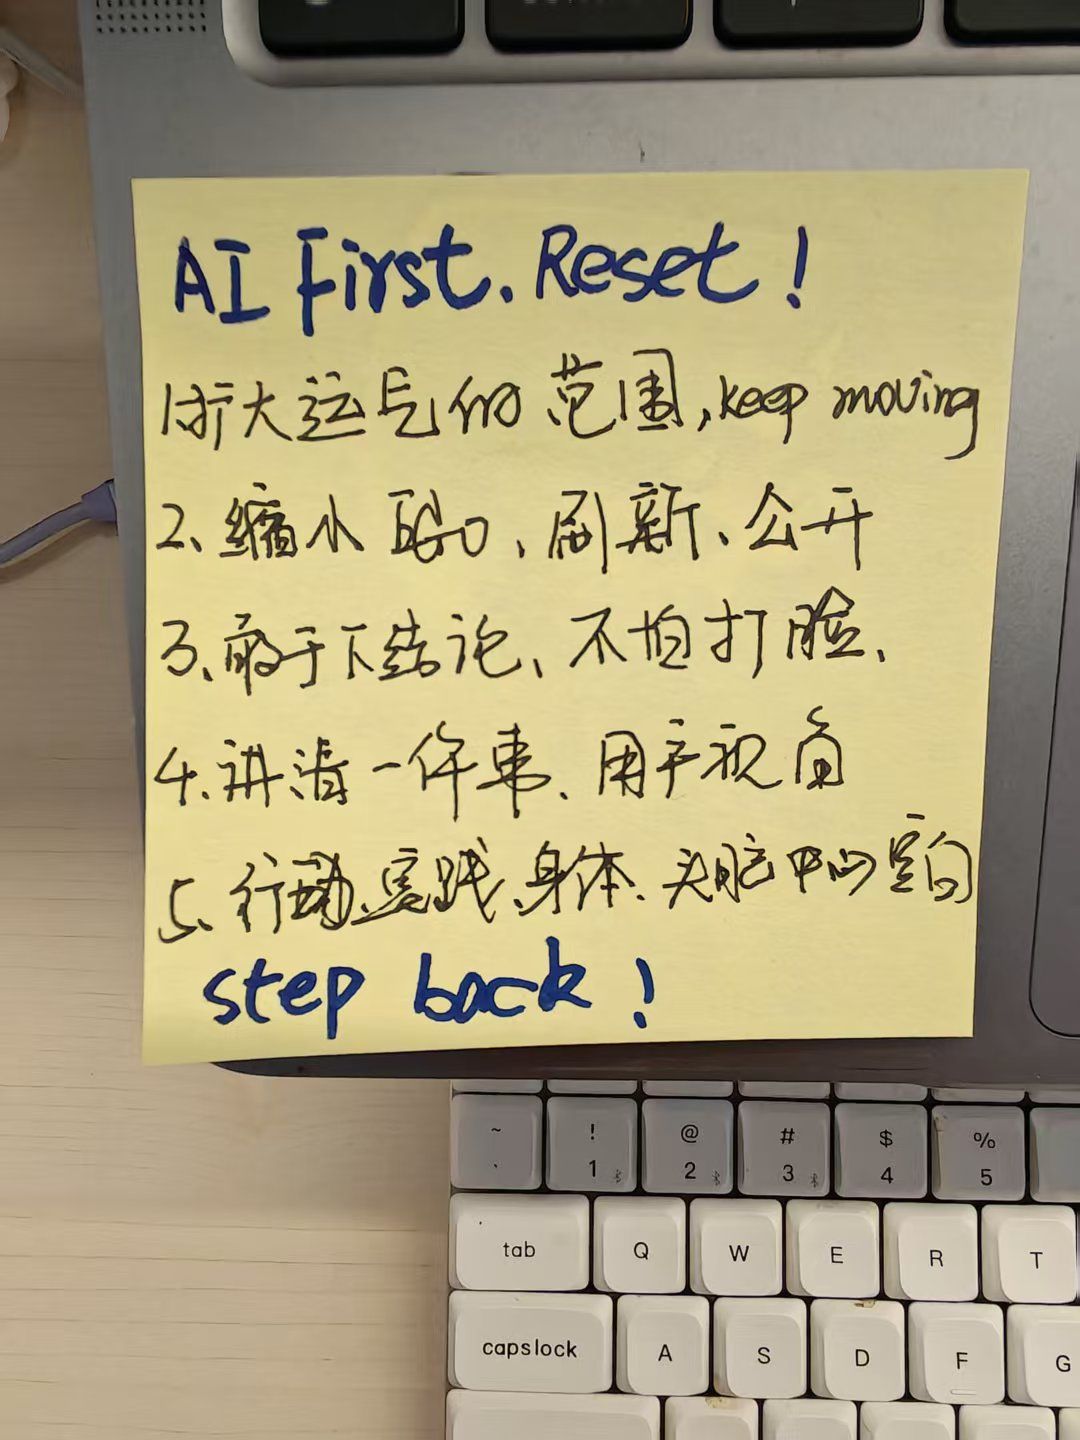 AI First. Reset!
1.扩大运气的范围,keep moving
2、缩小 EGO、刷新、公开
3、敢于下结论、不怕打脸、
4.讲清一件事、用户视角
5、行动、实践、身体、头脑中心空白
step back!
~ ! @ # $ %
` 1 2 3 4 5
tab Q W E R T
capslock A S D F G